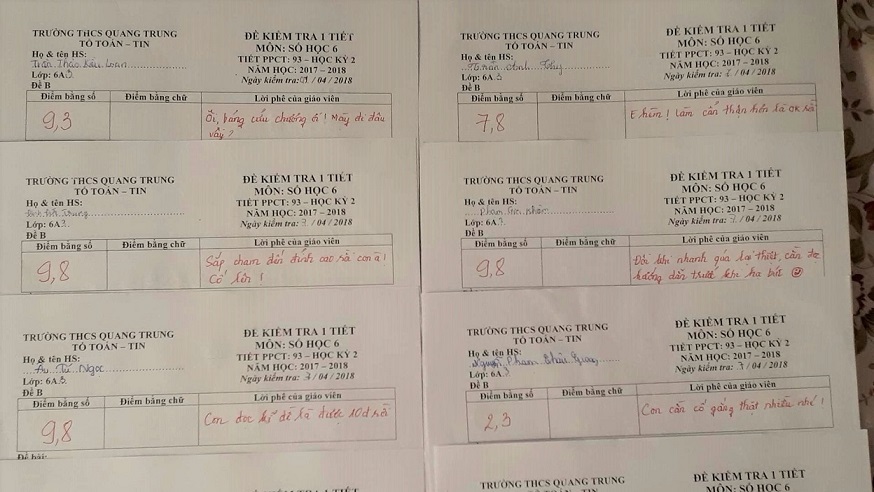 TRƯỜNG THCS QUANG TRUNG
TỔ TOÁN – TIN
Họ & tên HS:
Lớp: 6A3
Đề B
ĐỀ KIỂM TRA 1 TIẾT
MÔN: SỐ HỌC 6
TIẾT PPCT: 93 – HỌC KỲ 2
NĂM HỌC: 2017 – 2018
Ngày kiểm tra: / 04 / 2018
Điểm bằng số Điểm bằng chữ Lời phê của giáo viên
9,3
Ôi, bảng cửu chương ơi! Mày đi đâu
vậy?
TRƯỜNG THCS QUANG TRUNG
TỔ TOÁN – TIN
Họ & tên HS:
Lớp: 6A3
Đề B
ĐỀ KIỂM TRA 1 TIẾT
MÔN: SỐ HỌC 6
TIẾT PPCT: 93 – HỌC KỲ 2
NĂM HỌC: 2017 – 2018
Ngày kiểm tra: / 04 / 2018
Điểm bằng số Điểm bằng chữ Lời phê của giáo viên
7,8
E hèm! Làm cẩn thận hơn là OK rồi
TRƯỜNG THCS QUANG TRUNG
TỔ TOÁN – TIN
Họ & tên HS:
Lớp: 6A3
Đề B
ĐỀ KIỂM TRA 1 TIẾT
MÔN: SỐ HỌC 6
TIẾT PPCT: 93 – HỌC KỲ 2
NĂM HỌC: 2017 – 2018
Ngày kiểm tra: / 04 / 2018
Điểm bằng số Điểm bằng chữ Lời phê của giáo viên
9,8
Sắp chạm đến đỉnh cao rồi con ạ!
Cố lên!
TRƯỜNG THCS QUANG TRUNG
TỔ TOÁN – TIN
Họ & tên HS:
Lớp: 6A3
Đề B
ĐỀ KIỂM TRA 1 TIẾT
MÔN: SỐ HỌC 6
TIẾT PPCT: 93 – HỌC KỲ 2
NĂM HỌC: 2017 – 2018
Ngày kiểm tra: / 04 / 2018
Điểm bằng số Điểm bằng chữ Lời phê của giáo viên
9,8
Đôi khi nhanh quá lại thiệt, cần đọc
hướng dẫn trước khi hạ bút
TRƯỜNG THCS QUANG TRUNG
TỔ TOÁN – TIN
Họ & tên HS:
Tú Ngọc
Lớp: 6A3
Đề B
ĐỀ KIỂM TRA 1 TIẾT
MÔN: SỐ HỌC 6
TIẾT PPCT: 93 – HỌC KỲ 2
NĂM HỌC: 2017 – 2018
Ngày kiểm tra: 3 / 04 / 2018
Điểm bằng số Điểm bằng chữ Lời phê của giáo viên
9,8
Con đọc kỹ đề là được 10đ rồi
Đề bài:
TRƯỜNG THCS QUANG TRUNG
TỔ TOÁN – TIN
Họ & tên HS:
Nguyễn Phạm Châu Giang
Lớp: 6A3
Đề B
ĐỀ KIỂM TRA 1 TIẾT
MÔN: SỐ HỌC 6
TIẾT PPCT: 93 – HỌC KỲ 2
NĂM HỌC: 2017 – 2018
Ngày kiểm tra: 3 / 04 / 2018
Điểm bằng số Điểm bằng chữ Lời phê của giáo viên
2,3
Con cần cố gắng thật nhiều nhé!
TRƯỜNG THCS QUANG TRUNG
ĐỀ KIỂM TRA 1 TIẾT
TRƯỜNG THCS QUANG TRUNG
ĐỀ KIỂM TRA 1 TIẾT
MÔN: SỐ HỌC 6